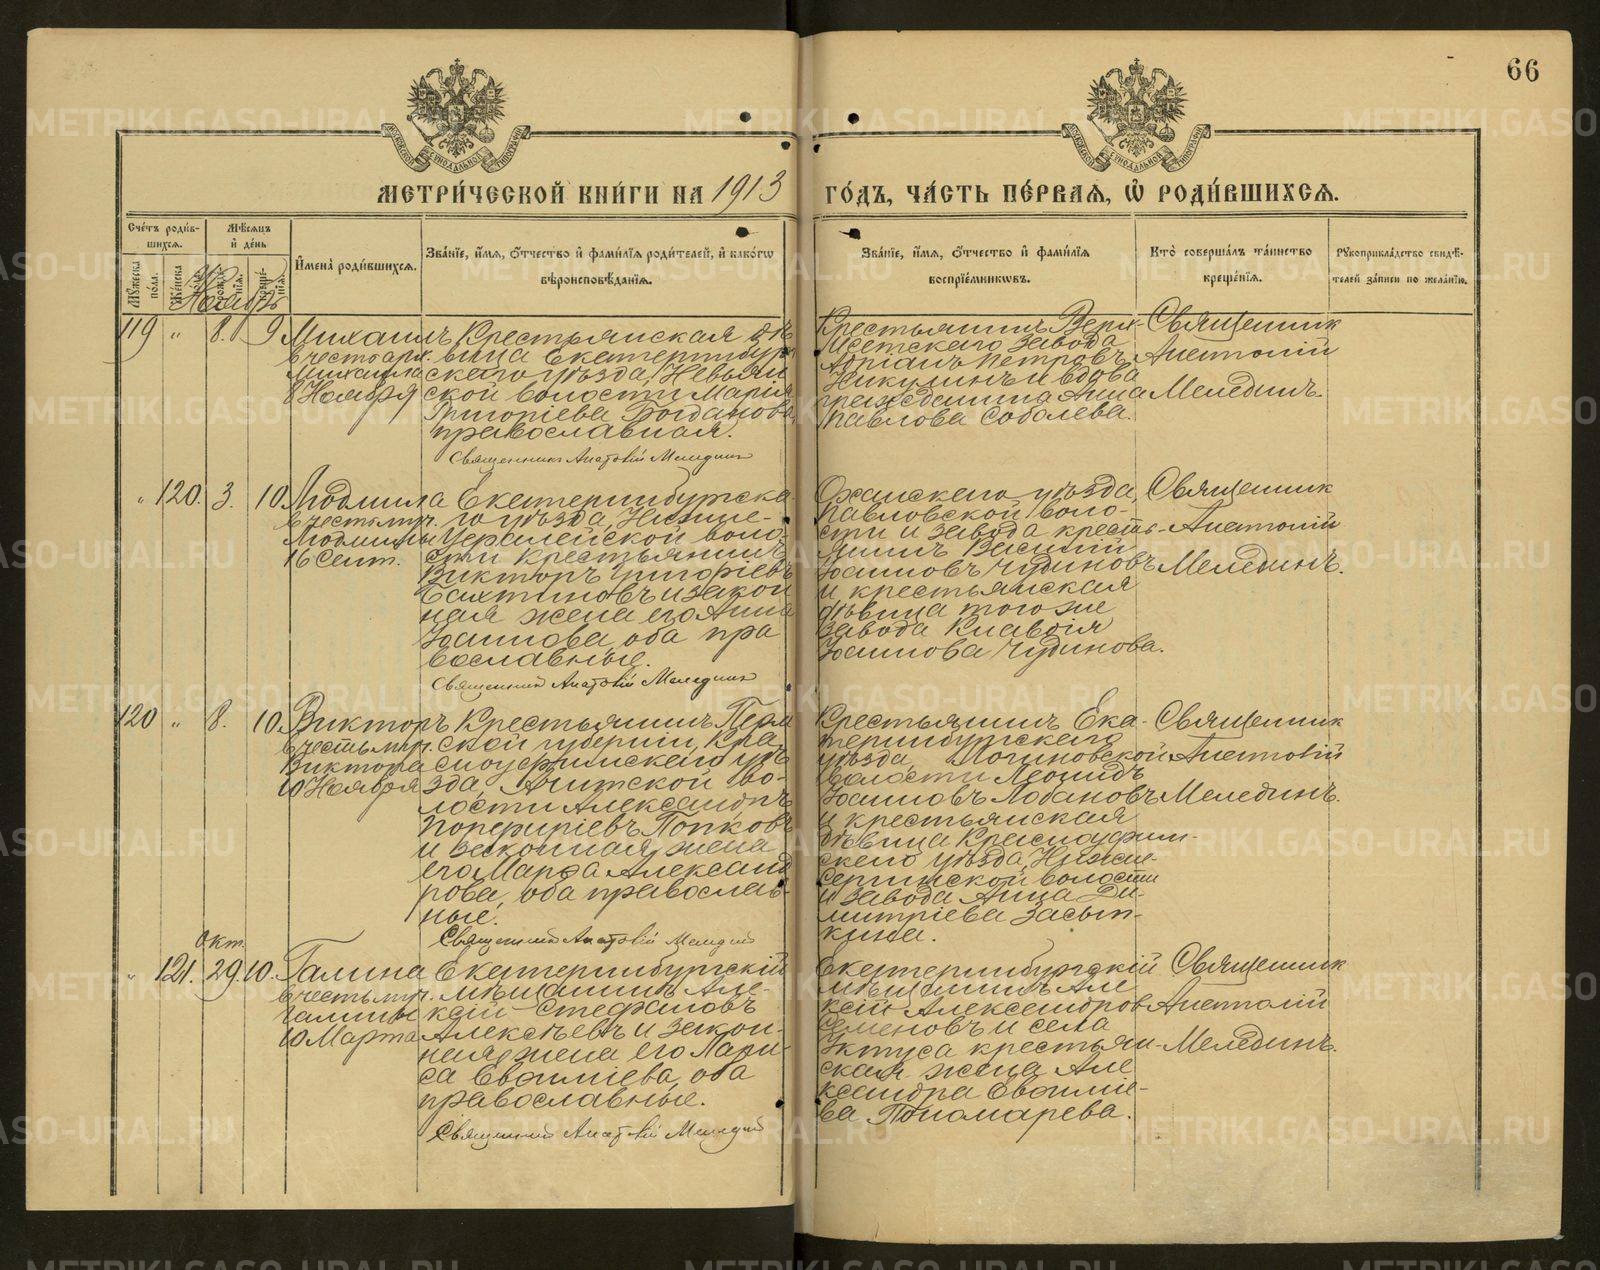 66
МЕТРИ́ЧЕСКОЙ КНИ́ГИ НА 1913 ГО́ДЪ, ЧА́СТЬ ПЕ́РВАЯ, Ѡ҆ РОДИ́ВШИХСЯ.
Сче́тъ роди́в-
шихся.
Мѣ́сяцъ
и҆ де́нь
И҆мена̀ роди́вшихся.
Зва́нїе, и҆́мя, ѻ҆́тчество и҆ фами́лїя роди́телей, и҆ како́гѡ
вѣроисповѣ́данїя.
Зва́нїе, и҆́мя, ѻ҆́тчество и҆ фами́лїя
воспрїе́мникѡвъ.
Кто̀ соверша́лъ та́инство
креще́нїя.
Рꙋкоприкла́дство свидѣ́-
телей за́писи по жела́нїю.
Мꙋ́жеска
по́ла.
Же́нска
Ноябрь
119 " 8. 9
Михаилъ
в честь арх.
Михаила
8 Ноября
Крестьянская дѣ-
вица Екатеринбург-
скаго уѣзда, Невьян-
ской волости Марія
Григоріева Богданова,
православная.
Священникъ Анатолій Мелединъ
Крестьянинъ Верх-
Исетскаго завода
Адріанъ Петровъ
Никулинъ и вдова
гражданина Анна
Павлова Соболева.
Священник
Анатолій
Мелединъ.
" 120. 3. 10.
Людмила
в честь муч.
Людмилы
16 Сент.
Екатеринбургска-
го уѣзда, Нижне-
Уфалейской воло-
сти крестьянинъ
Викторъ Григоріевъ
и закон
ная жена его Анна
Іоаннова, оба пра
вославные.
Священник Анатолій Мелединъ
Оханскаго уѣзда,
Павловской воло-
сти и завода кресть-
янинъ Василій
Іоанновъ Чудиновъ
и крестьянская
дѣвица того же
завода Клавдія
Іоаннова Чудинова.
Священник
Анатолій
Мелединъ.
120 " 8. 10.
Викторъ
в честь муч.
Виктора
10 Ноября
Крестьянинъ Перм
ской губерніи, Кра
сноуфимскаго уѣ-
зда, Ачитской во-
лости Александръ
Порфиріевъ Попковъ
и законная жена
его Марѳа Александ
рова, оба православ-
ные.
Священник Анатолій Меледин
Крестьянинъ Ека-
теринбургскаго
уѣзда, Логиновской
волости Леонидъ
Іоанновъ Лобановъ
и крестьянская
дѣвица Красноуфим-
скаго уѣзда, Нижне-
сергинской волости
и завода Анна Ди-
митріева Засып-
кина.
Священник
Анатолій
Мелединъ.
окт.
" 121. 29. 10.
Галина
в честь муч.
Галины
10 Марта
Екатеринбургскій
мѣщанинъ Але-
ксій Стефановъ
Алексѣевъ и закон-
ная жена его Лари-
са Евѳиміева, оба
православные.
Священник Анатолій Меледин
Екатеринбургскій
мѣщанинъ Але
ксій Александров
Семеновъ и села
Уктуса крестьян-
ская жена Але
ксандра Евѳиміе-
ва Пономарева.
Священник
Анатолій
Мелединъ.
METRIKI.GASO-URAL.RU